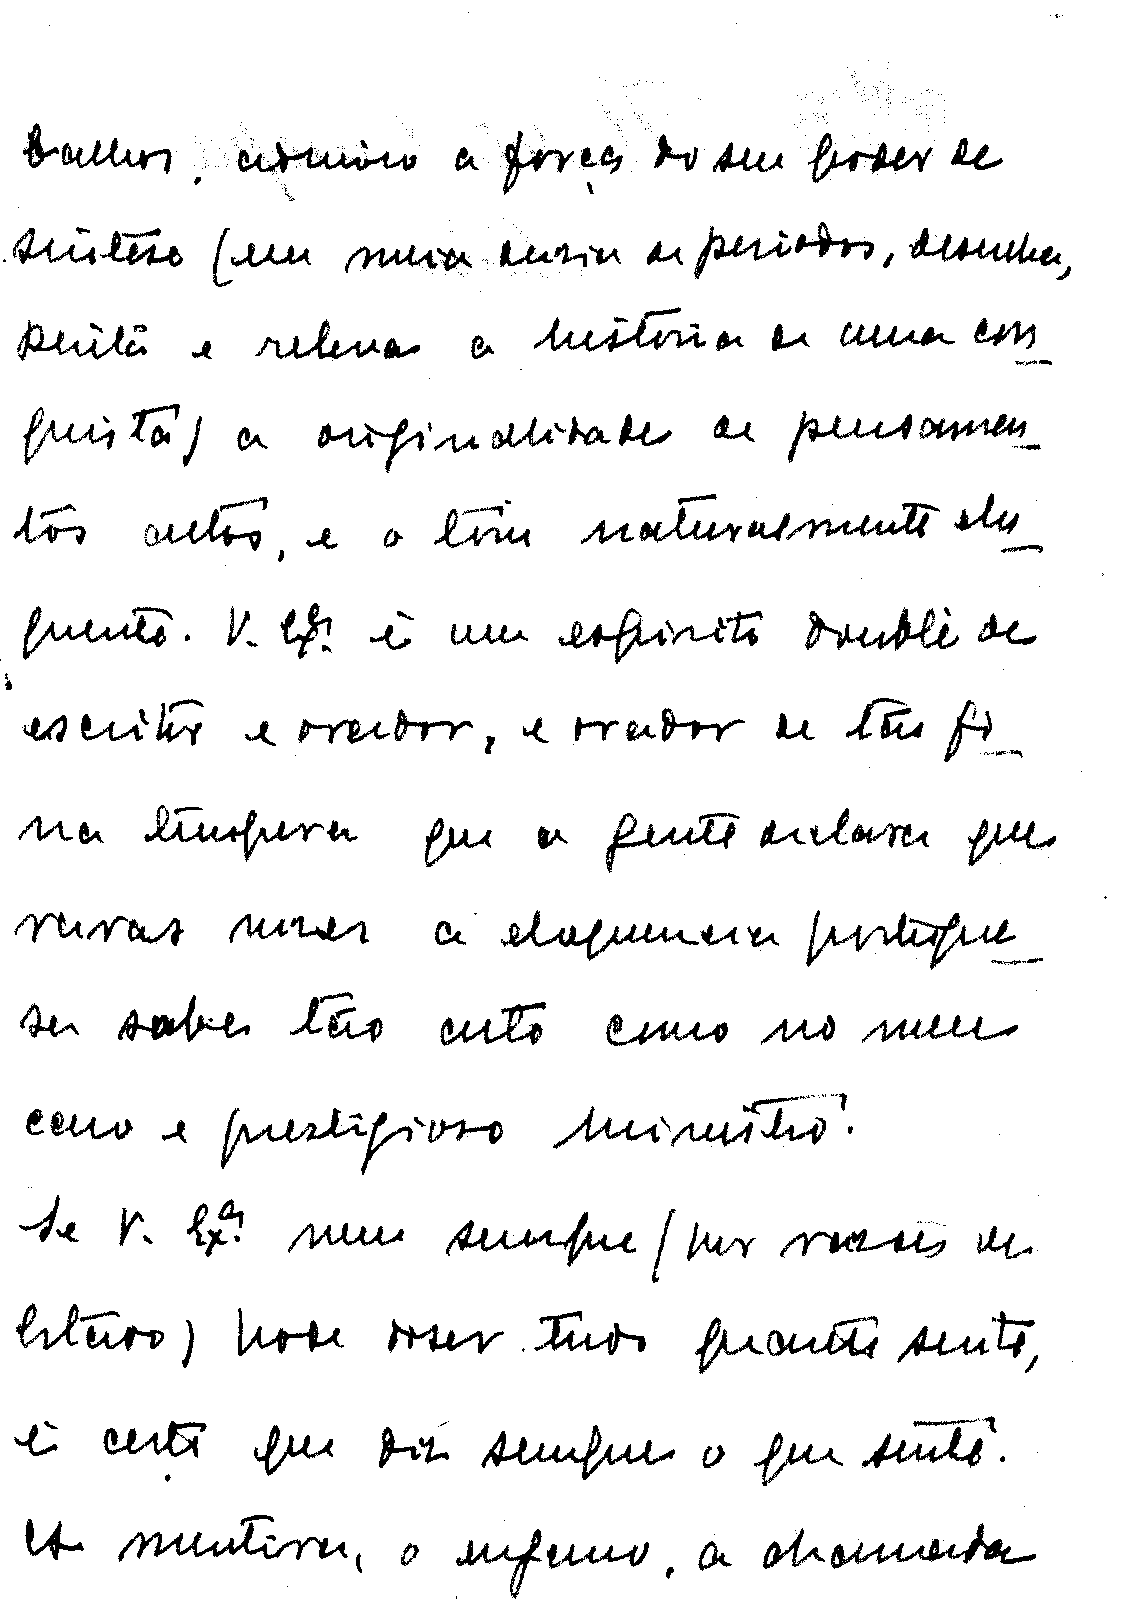 balhos, admiro a força do seu poder de
síntese (em meia dusia de periodos, desenha,
pinta e releva a história de uma con
quista) a originalidade de pensamen
tos altos, e o tom naturalmente elo
quente. V. Exª. é um espirito doublé de
escritor e orador, e orador de tão fi
na tempera que a gente declara que
raras vezes a eloquencia portugue
sa sabe tão alto como no meu
caro e prestigioso Ministro.
Se V. Exª. nem sempre (por razões de
Estado) pode diser tudo quanto sente,
é certo que diz sempre o que sente.
A mentira, o engano, a chamada